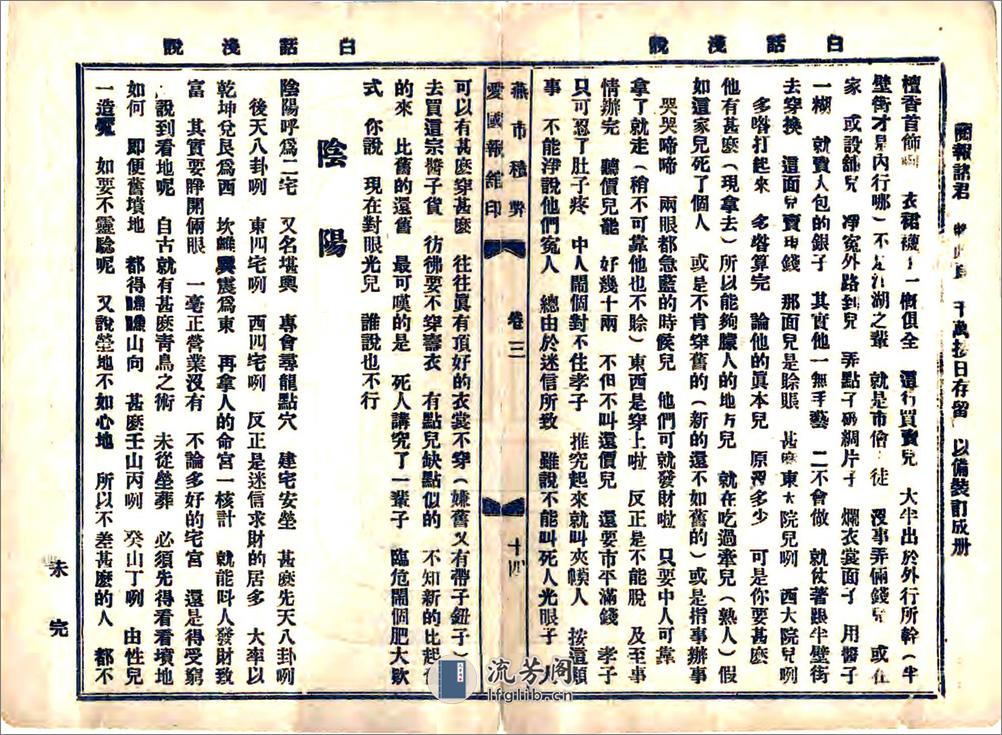 白話淺說
白話淺說
閱報諸君　千萬按日存留　以備裝訂成册
檀香首飾　衣裙襪　一概俱全　還有買賣兒　大半出於外行所幹（半
壁街才是內行哪）不是江湖之輩　就是市儈　徒　沒事弄倆錢兒　或在
家　或設舖兒　凈寃外路到兒　弄點子　綢片子　爛衣裳面子　用醫子
一糊　就賣人包的銀子　其實他一無手藝　二不會做　就仗著跟半壁街
去穿換　這面兒賣現錢　那面兒是賒賬　甚麽東大院兒咧　西大院兒咧
多喒打起來　多喒算完　論他的眞本兒　原沒多少　可是你要甚麽
他有甚麽（現拿去）所以能夠朦人的地方兒　就在吃過牽兒（熟人）假
如這家兒死了個人　或是不肯穿舊的（新的還不如舊的）或是指事辦事
哭哭啼啼　兩眼都急藍的時候兒　他們可就發財啦　只要中人可靠
拿了就走（稍不可靠他也不賒）東西是穿上啦　反正是不能脫　及至事
情辦完　聽價兒罷　好幾十兩　不但不叫還價兒　還要市平滿錢　孝子
只可忍了肚子疼　中人鬧個對不住孝子　推究起來就叫夾幙人　按這類
事　不能淨說他們寃人　總由於迷信所致　雖說不能叫死人光眼子
燕市積弊　卷三　十四
愛國報館印
可以有甚麽穿甚麽　往往眞有頂好的衣裳不穿（嫌舊又有帶子鈕子）
去買這宗醫子貨　彷彿要不穿壽衣　有點兒缺點似的　不知新的比起
的來　比舊的還舊　最可嘆的是　死人講究了一輩子　臨危鬧個肥大欵
式　你說　現在對眼光兒　誰說也不行
陰陽
陰陽呼爲二宅　又名堪輿　專會尋龍點穴　建宅安塋　甚麽先天八卦咧
後天八卦咧　東四宅咧　西四宅咧　反正是迷信求財的居多　大率以
乾坤兌艮爲西　坎離巽震爲東　再拿人的命宮一核計　就能叫人發財致
富　其實要睜開倆眼　一毫正營業沒有　不論多好的宅宮　還是得受窮
說到看地呢　自古就有甚麽靑鳥之術　未從塋葬　必須先得看看墳地
如何　即便舊墳地　都得瞧瞧山向　甚麽壬山丙咧　癸山丁咧　由性兒
一造寃　如要不靈騐呢　又說塋地不如心地　所以不差甚麽的人　都不
未完
流芳阁
lfglib.cn